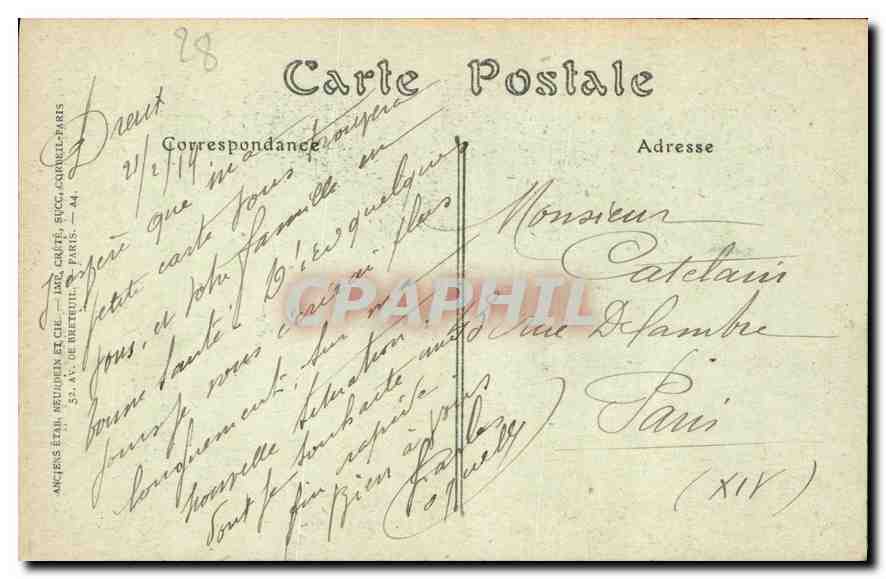 28
Carte Postale
Correspondance
Adresse
ANCIENS ÉTAB. NEURDEIN ET CIE. — IMP. CRÉTÉ, SUCC. CORBEIL-PARIS
52, AV. DE BRETEUIL, PARIS. — A4.
Dreux
21/2/19
J'espère que ma
petite carte vous trouvera
tous, et votre famille en
bonne santé. D'ici quelques
jours je vous écrirai plus
longuement, sur ma
nouvelle situation
dont je souhaite une
fin rapide.
Bien à vous
Monsieur
Catelain
Rue Delambre
Paris
(XIV)
CPAPHIL